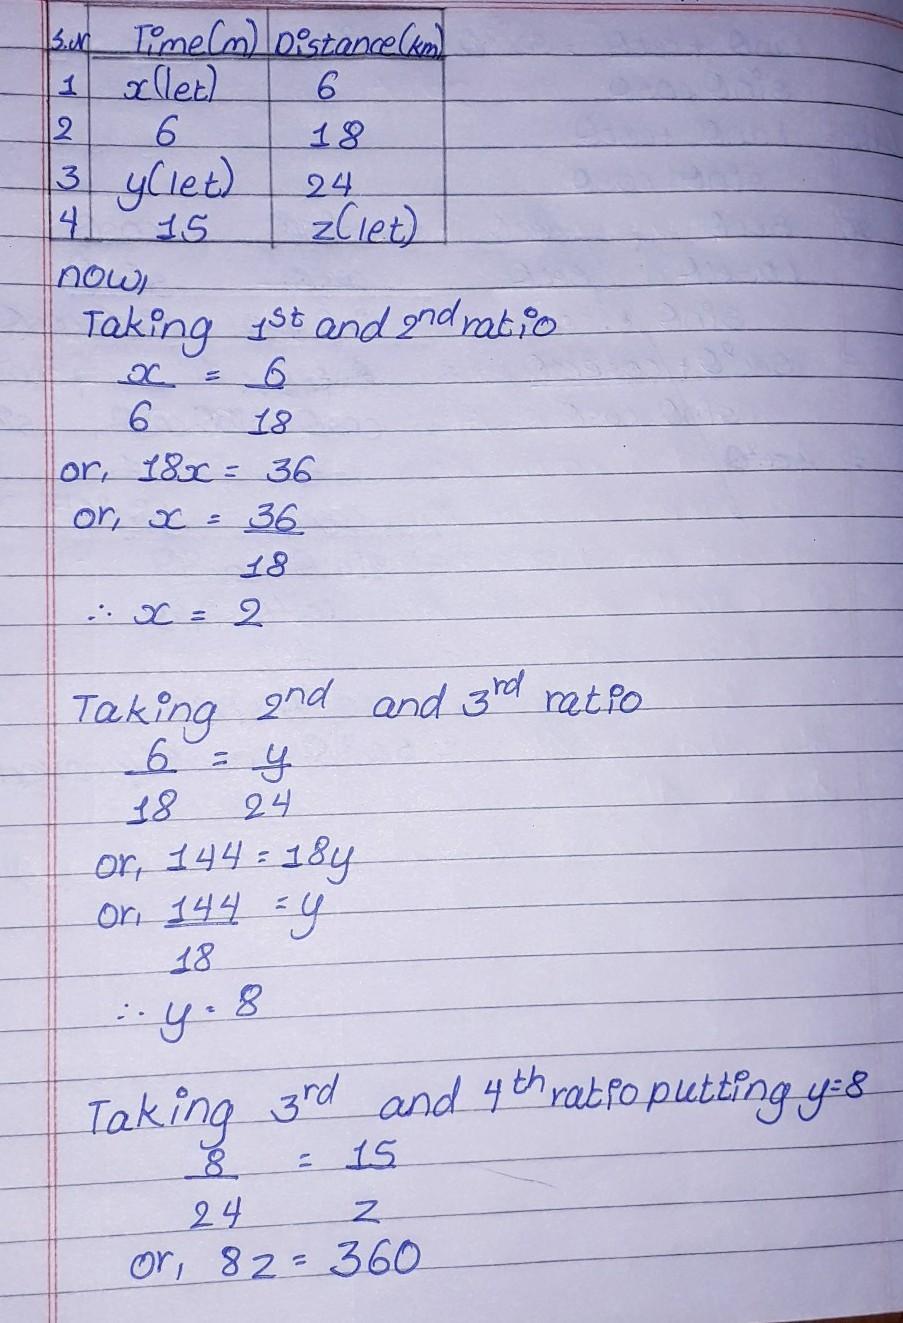 S.N Time(m) Distance(km)
1 x(let) 6
2 6 18
3 y(let) 24
4 15 z(let)
now,
Taking 1st and 2nd ratio
x = 6
6 18
or, 18x = 36
or, x = 36
18
∴ x = 2
Taking 2nd and 3rd ratio
6 = y
18 24
or, 144 = 18y
or, 144 = y
18
∴ y = 8
Taking 3rd and 4th ratio putting y=8
8 = 15
24 z
or, 8z = 360